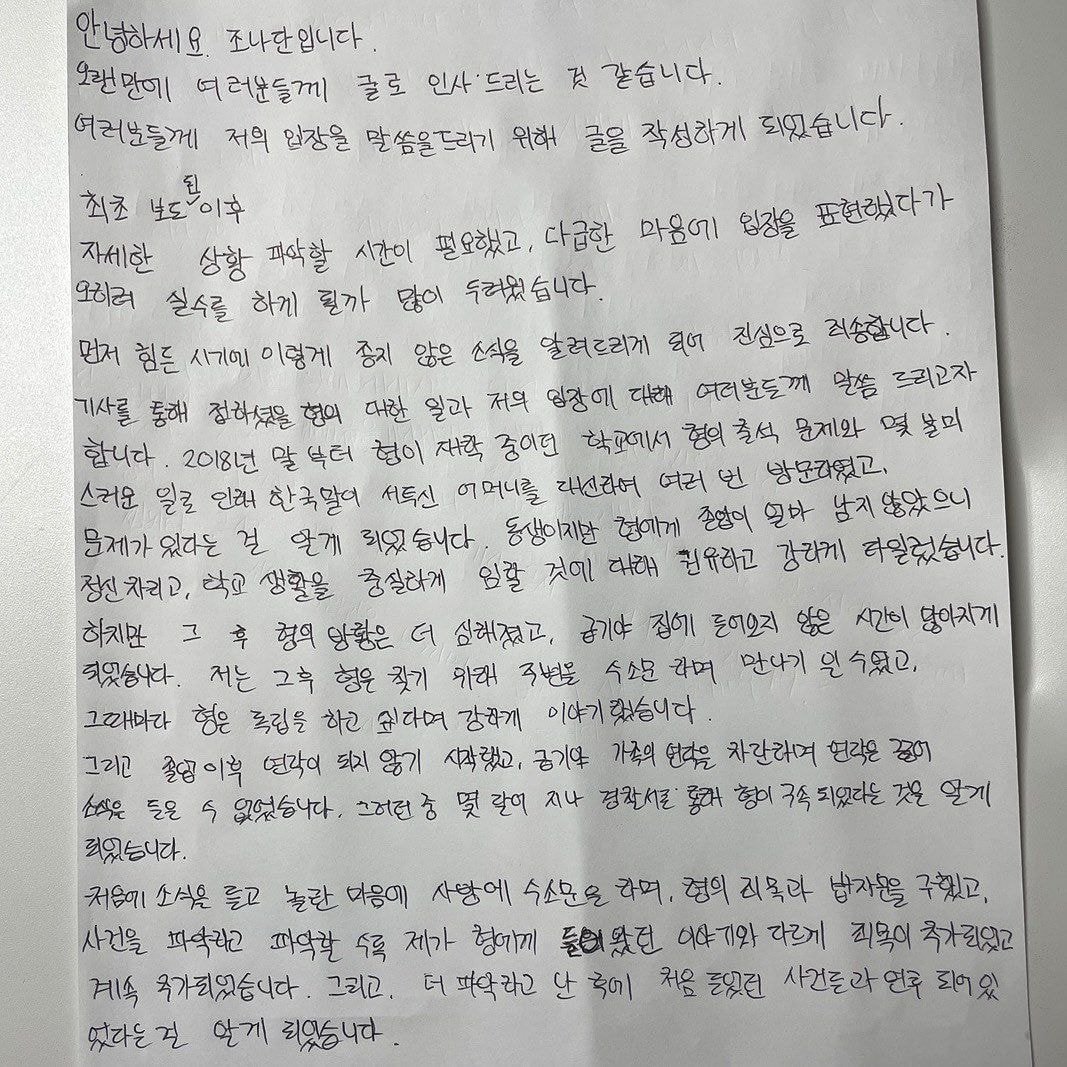 안녕하세요. 조나단입니다.
오랜만에 여러분들께 글로 인사 드리는 것 같습니다.
여러분들께 저의 입장을 말씀을드리기 위해 글을 작성하게 되었습니다.
최초 보도된 이후
자세한 상황 파악할 시간이 필요했고, 다급한 마음에 입장을 표현했다가
오히려 실수를 하게 될까 많이 두려웠습니다.
먼저 힘든 시기에 이렇게 좋지 않은 소식을 알려드리게 되어 진심으로 죄송합니다.
기사를 통해 접하셨을 형의 대한 일과 저의 입장에 대해 여러분들께 말씀 드리고자
합니다. 2018년 말 부터 형이 재학 중이던 학교에서 형의 출석 문제와 몇 불미
스러운 일로 인해 한국말이 서투신 어머니를 대신하여 여러 번 방문하였고,
문제가 있다는 걸 알게 되었습니다. 동생이지만 형에게 졸업이 얼마 남지 않았으니
정신차리고, 학교 생활을 충실하게 임할 것에 대해 권유하고 강하게 타일렀습니다.
하지만 그 후 형의 방황은 더 심해졌고, 급기야 집에 들어오지 않은 시간이 많아지게
되었습니다. 저는 그후 형을 찾기 위해 주변을 수소문 하며 만나기 일 수였고,
그때마다 형은 독립을 하고 싶다며 강하게 이야기 했습니다.
그리고 졸업 이후 연락이 되지 않기 시작했고, 급기야 가족의 연락을 차단하며 연락은 끊어
소식을 들을 수 없었습니다. 그러던 중 몇 달이 지나 경찰서를 통해 형이 구속 되었다는 것을 알게
되었습니다.
처음에 소식을 듣고 놀란 마음에 사방에 수소문을 하며, 형의 죄목과 법자문을 구했고,
사건을 파악하고 파악할 수록 제가 형에게 들어 왔던 이야기와 다르게 죄목이 추가되었고
계속 추가되었습니다. 그리고, 더 파악하고 난 후에 처음 들었던 사건들과 연루 되어 있
었다는 걸 알게 되었습니다.